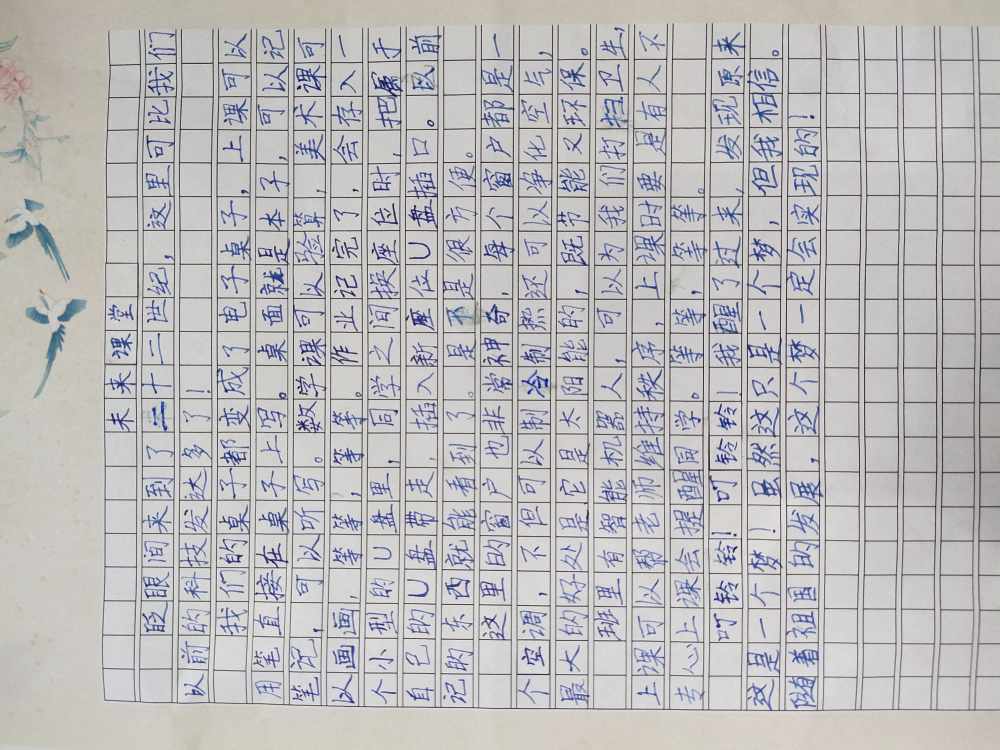 未来课堂
眨眼间来到了二十二世纪，这里可比我们
以前的科技发达多了！
我们的桌子都变成了电子桌子，上课可以
用笔直接在桌子上写。桌面就是本子，可以记
笔记，可以听写。数学课可以验算，美术课可
以画画，等等，等等。作业记完了，会存入一
个小型的U盘里，同学之间换座位时，把属于
自己的U盘带走，插入新座位U盘插口。以前
记的东西就能看到了。是不是很方便。
这里的窗户也非常神奇，每个窗户都是一
个空调，不但可以制冷制热还可以净化空气，
最大的好处是它是太阳能的，既节能又环保。
班里有智能机器人，可以为我们打扫卫生，
上课可以帮老师维持秩序，上课时要是有人不
专心上课会提醒同学。等等，等等。
叮铃铃！叮铃铃！我醒了过来，发现原来
这是一个梦！虽然这只是一个梦，但我相信。
随着祖国的发展，这个梦一定会实现的！